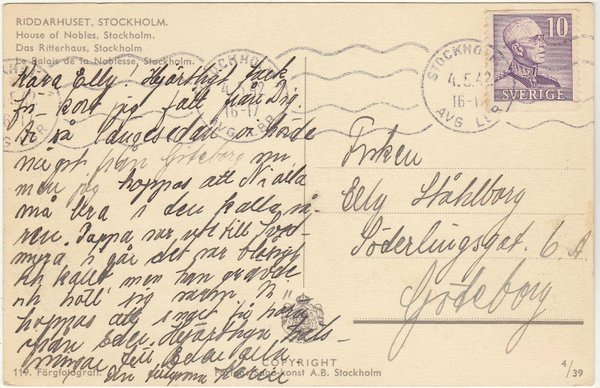 RIDDARHUSET, STOCKHOLM.
House of Nobles, Stockholm.
Das Ritterhaus, Stockholm
Le Palais de la Noblesse, Stockholm
10
SVERIGE
STOCKHOLM
4.5.42
16-17
AVG LBR
Kära Elly! Hjärtligt tack
för kort jag fått från Dig.
Det är så länge sedan vi hörde
något från Göteborg nu
men jag hoppas att Ni alla
må bra i den kalla
Pappa var ut till
i går det var blåsigt
och kallt men han
och höll sig varm. Vi
hoppas att snart få höra
från Eder. Hjärtliga
till Eder alla
Din tillgivna
Fröken
Elly Ståhlborg
Söderlingsgat. 6 A
Göteborg
119. Färgfotografi
COPYRIGHT
konst A.B. Stockholm
4/39